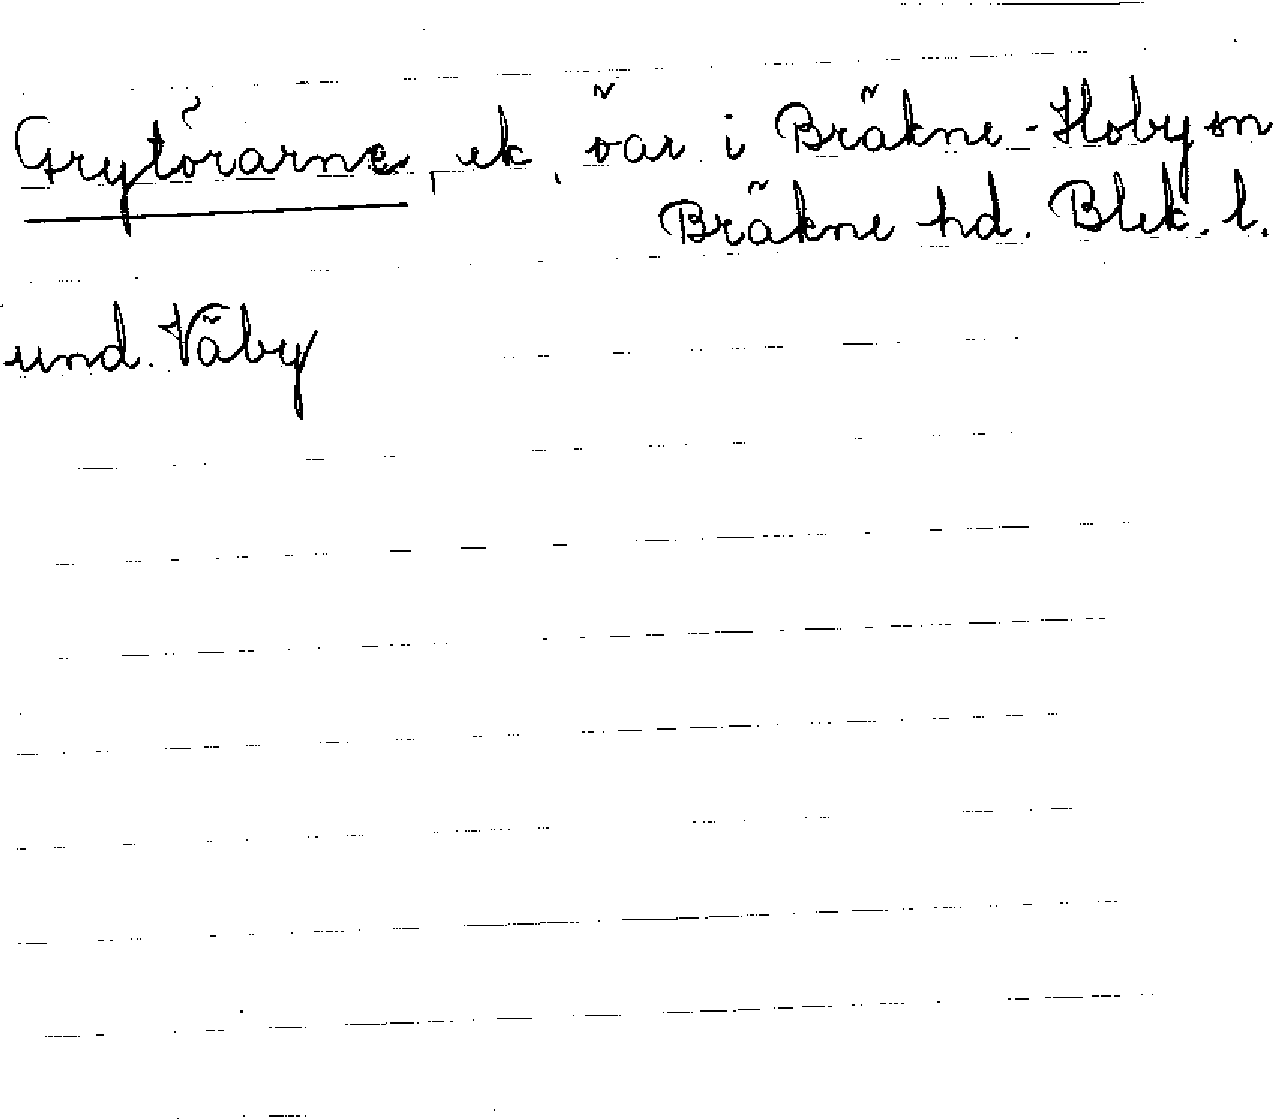 Grytörarne, ek, öar i Bräkne-Hoby sn
Bräkne hd. Blek. l.
und. Väby